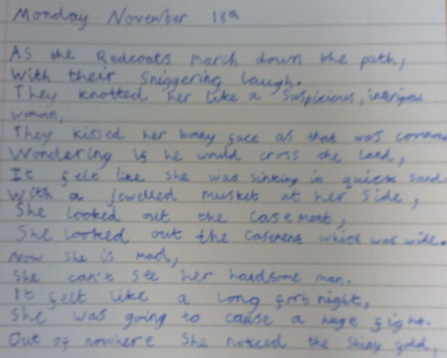 Monday November 18th
As the Redcoats march down the path,
With their sniggering laugh.
They knotted her like a suspicious,
woman,
They kissed her bonny face as that was
Wondering if he would cross the land,
It felt like she was sinking in quick sand
With a jewelled musket at her side,
She looked out the casement,
She looked out the casement which was wide.
Now she is mad,
She can't see her handsome man.
It felt like a long fortnight,
She was going to cause a huge fight.
Out of nowhere she noticed the shiny gold,